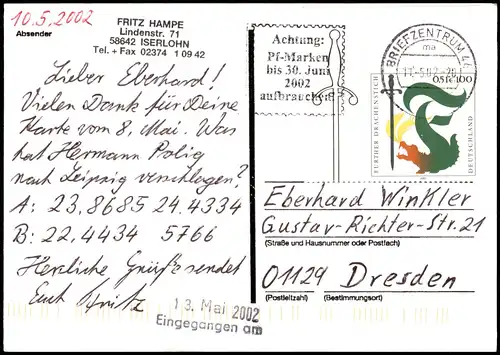 10.5.2002
Absender
FRITZ HAMPE
Lindenstr. 71
58642 ISERLOHN
Tel. + Fax 02374 1 09 42
Lieber Eberhard!
Vielen Dank für Deine
Karte vom 8. Mai. Was
hat Hermann
nach Leipzig verschlagen?
A: 23.8685 24.4334
B: 22.4434 5766
Herzliche Grüße sendet
Euch Fritz
13. Mai 2002
Eingegangen am
Achtung:
Pf-Marken
bis 30. Juni
2002
aufbrauchen
BRIEFZENTRUM 44
ma
FURTHER DRACHENSTICH
DEUTSCHLAND
Eberhard Winkler
Gustav-Richter-Str. 21
(Straße und Hausnummer oder Postfach)
01129 Dresden
(Postleitzahl) (Bestimmungsort)